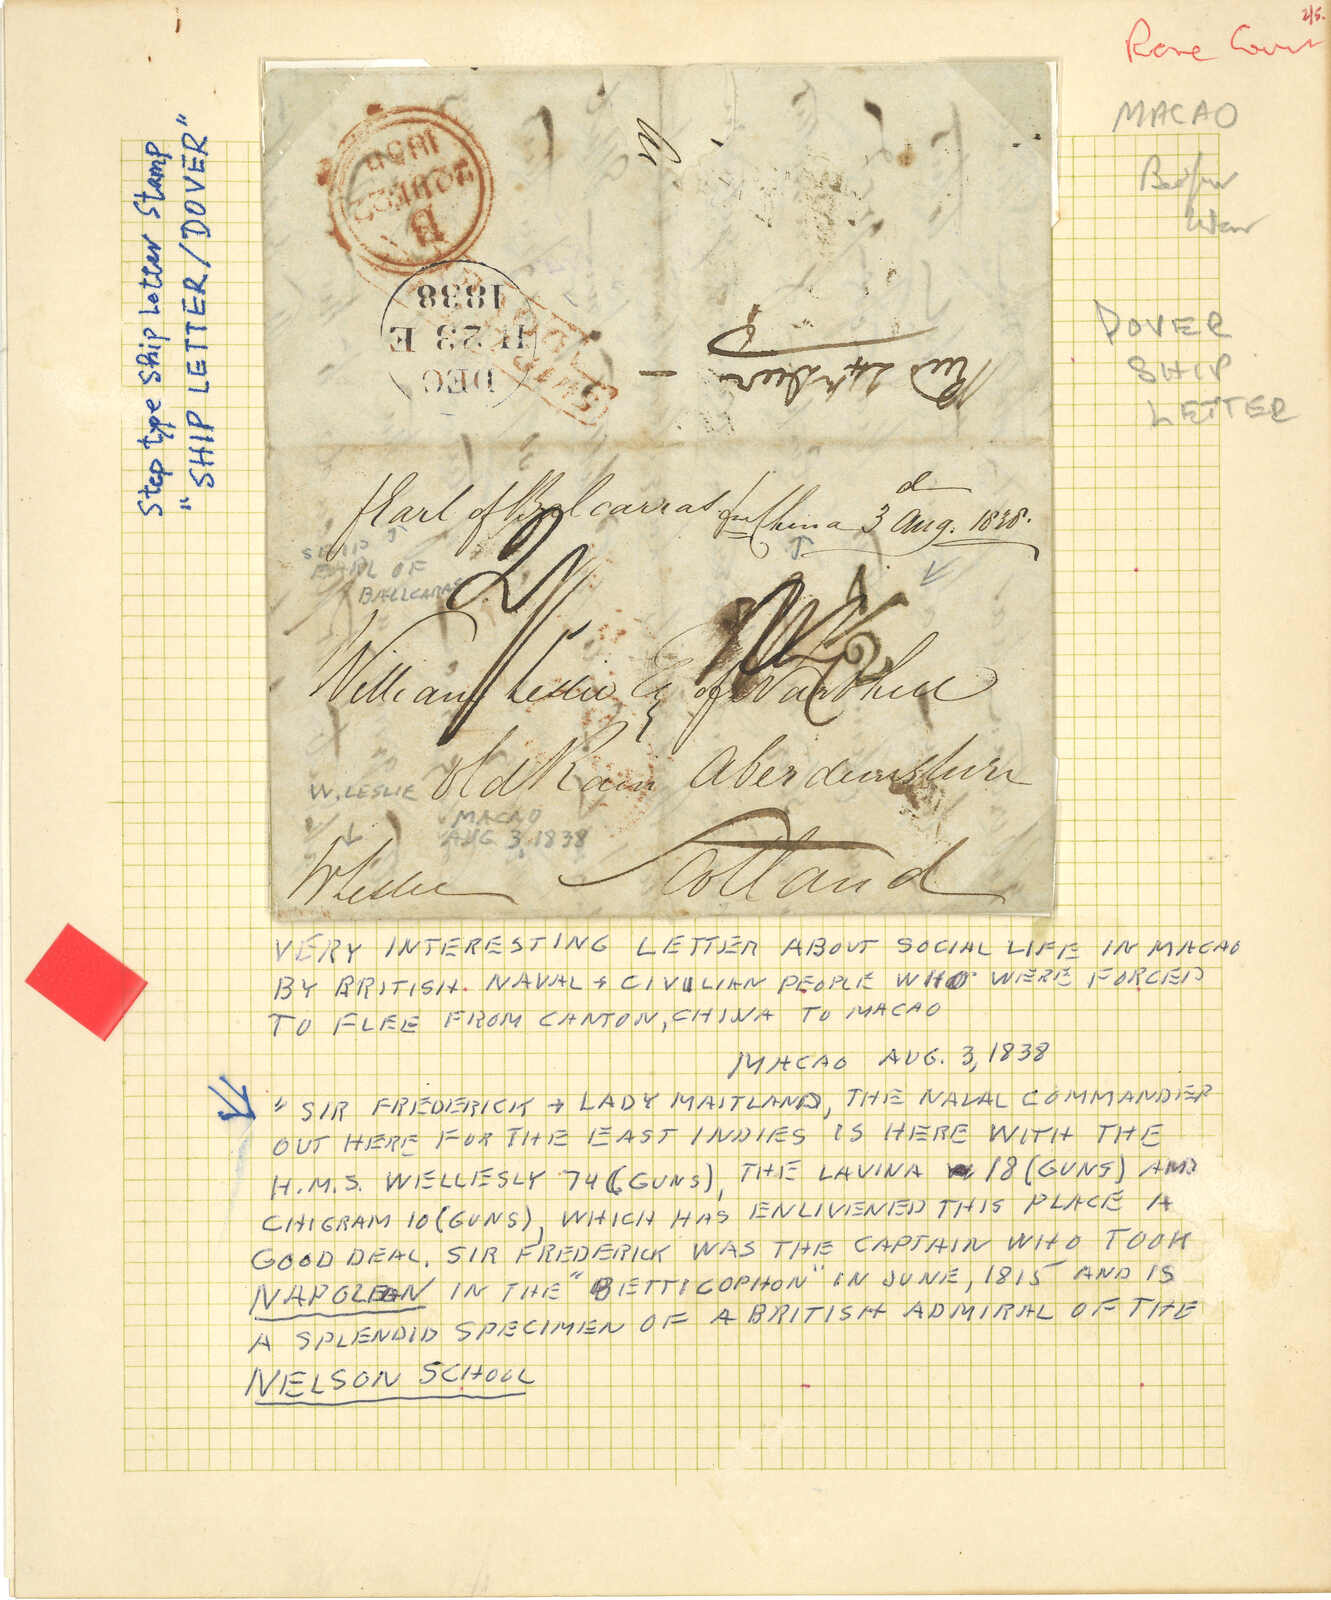 2/5.
Rare Cover
MACAO
Before
War
DOVER
SHIP
LETTER
Step type Ship Letter Stamp
"SHIP LETTER/DOVER"
B
22 DE 22
1838
DEC
23 E
1838
SHIP
Recd 24th Decr
p Earl of Balcarras fm China 3d Aug. 1838.
SHIP
EARL OF
BALLCARAS
2/
1/2
William Leslie Esq of Warthill
Old Rain Aberdeenshire
Scotland
W. LESLIE
MACAO
AUG 3, 1838
WLeslie
VERY INTERESTING LETTER ABOUT SOCIAL LIFE IN MACAO
BY BRITISH NAVAL + CIVILIAN PEOPLE WHO WERE FORCED
TO FLEE FROM CANTON, CHINA TO MACAO
MACAO AUG. 3, 1838
" SIR FREDERICK + LADY MAITLAND, THE NAVAL COMMANDER
OUT HERE FOR THE EAST INDIES IS HERE WITH THE
H.M.S. WELLESLY 74 (GUNS), THE LAVINA 18 (GUNS) AND
CHIGRAM 10 (GUNS), WHICH HAS ENLIVENED THIS PLACE A
GOOD DEAL. SIR FREDERICK WAS THE CAPTAIN WHO TOOK
NAPOLEON IN THE "BETTICOPHON" IN JUNE, 1815 AND IS
A SPLENDID SPECIMEN OF A BRITISH ADMIRAL OF THE
NELSON SCHOOL